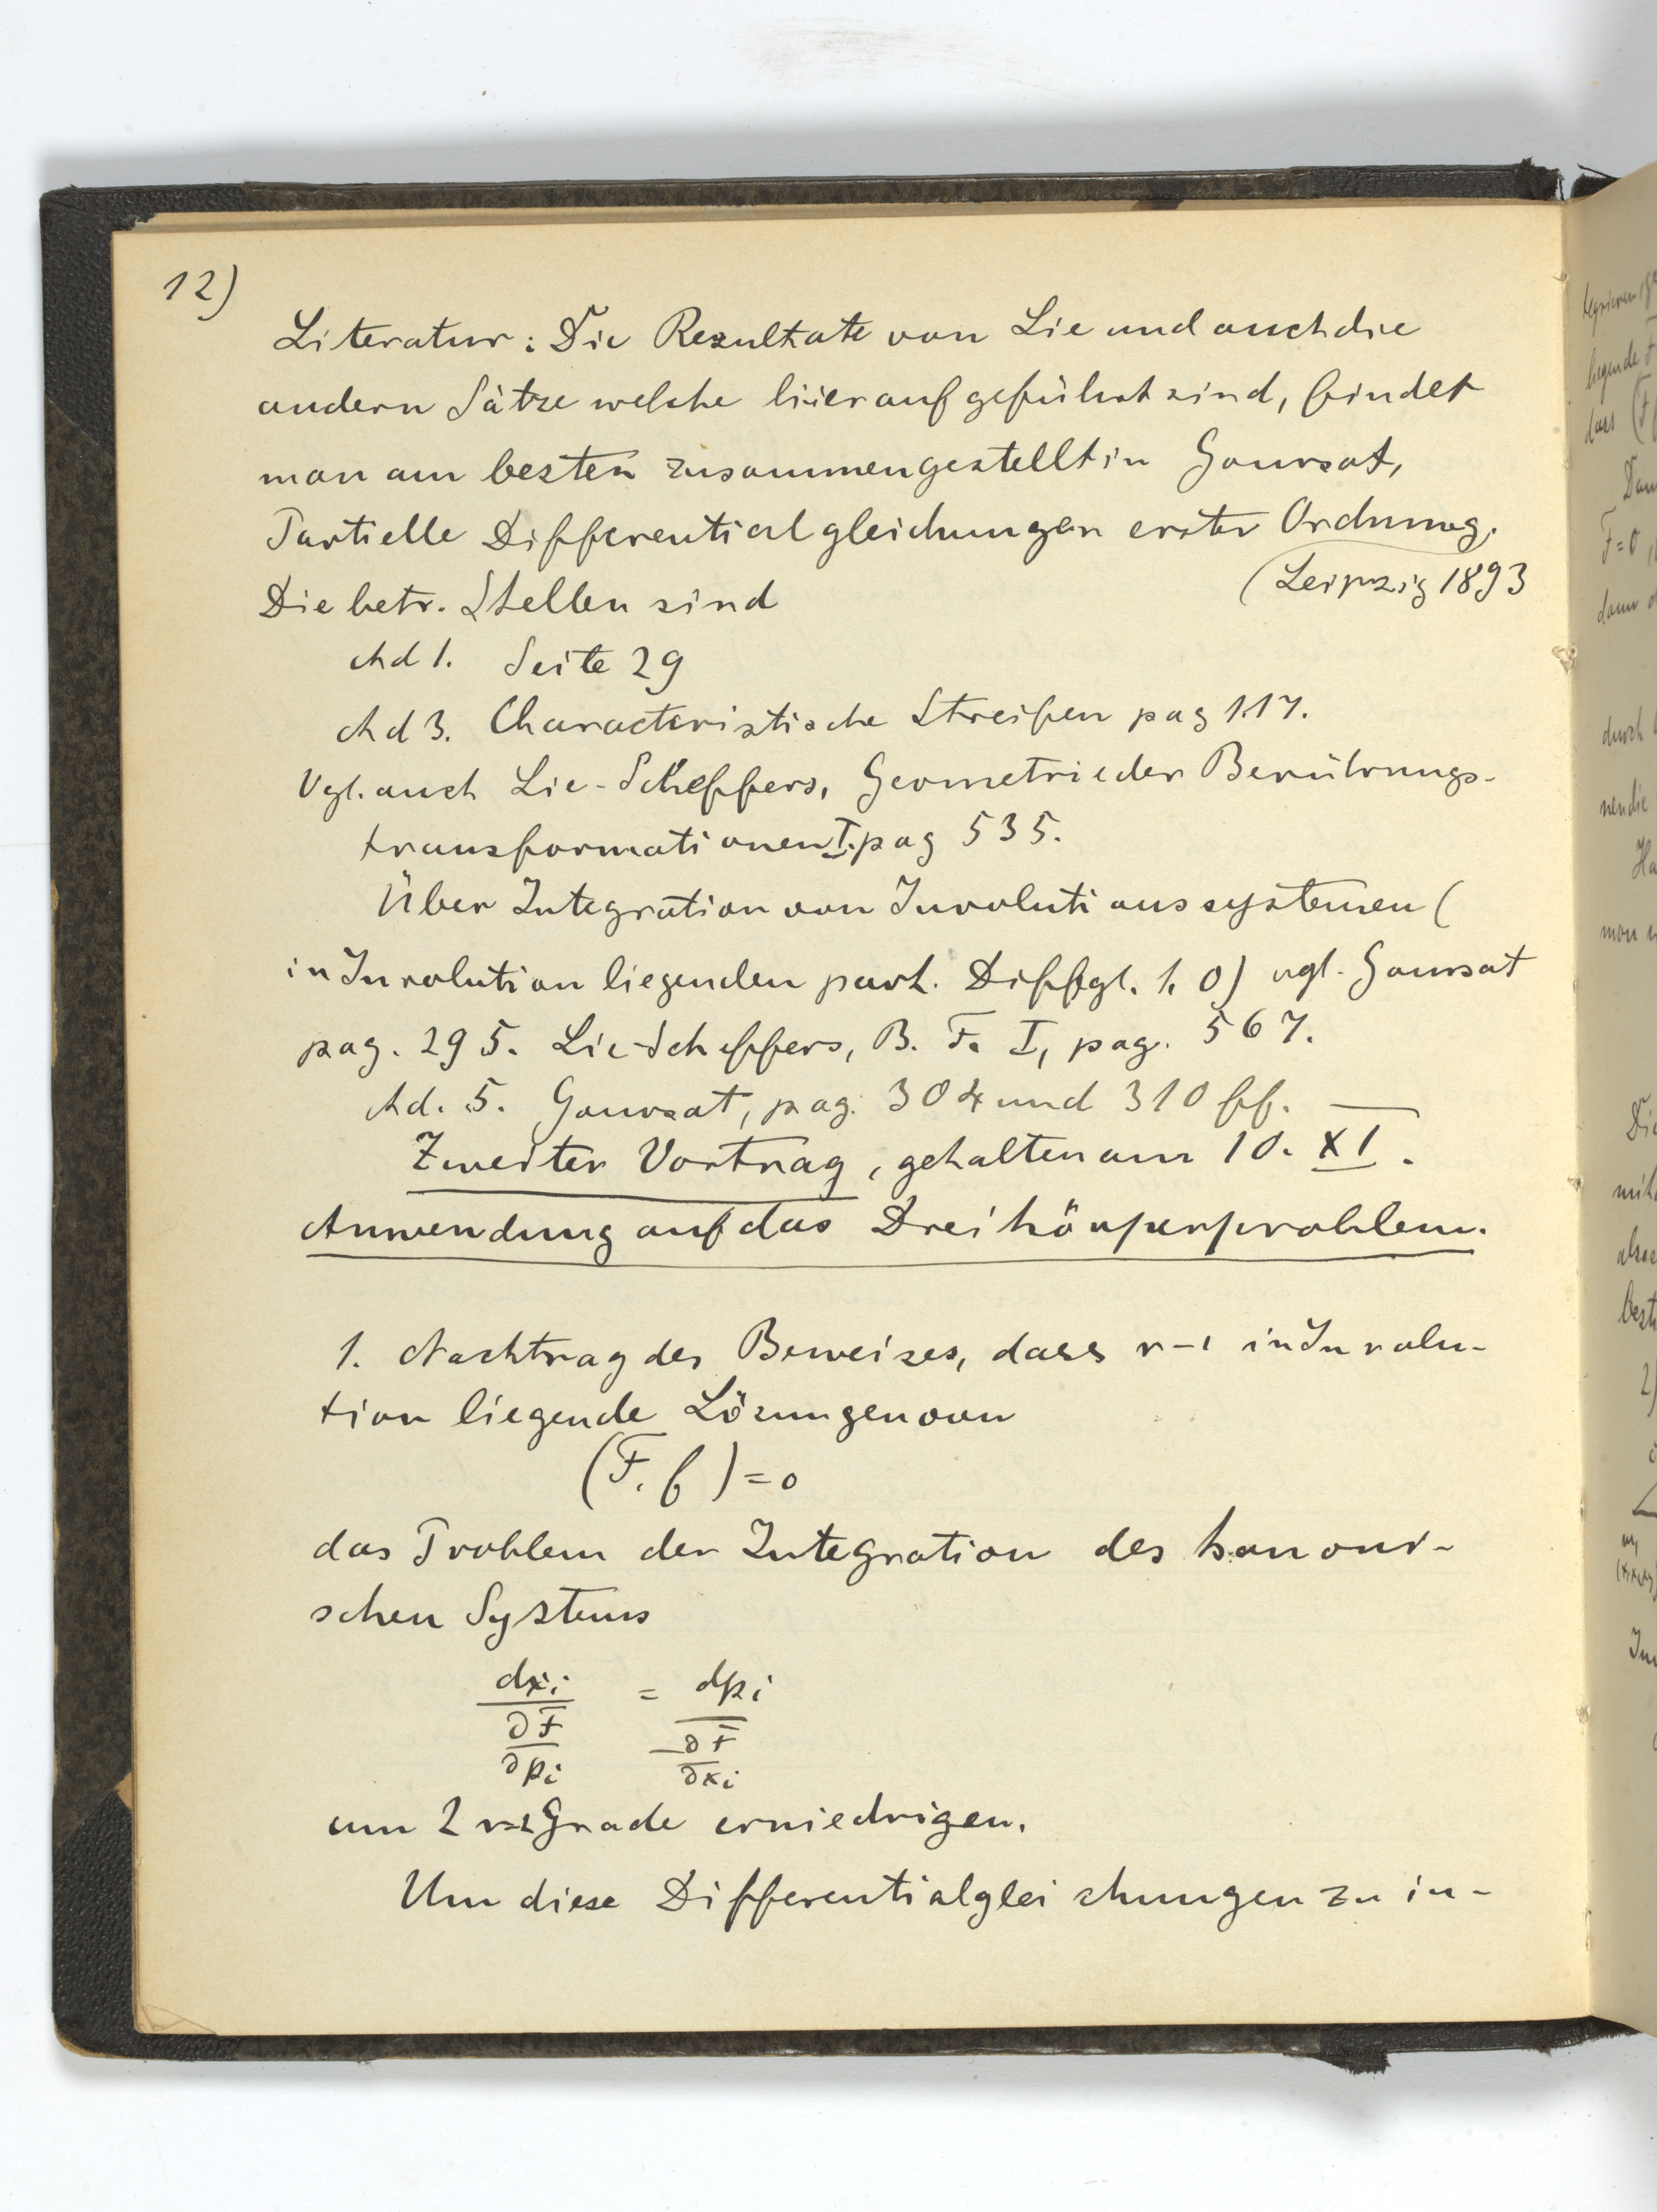 12)
Literatur: Die Resultate von Lie und auch die
andern Sätze welche hier aufgeführt sind, findet
man am besten zusammengestellt in Goursat,
Partielle Differentialgleichungen erster Ordnung.
(Leipzig 1893
Die betr. Stellen sind
Ad 1. Seite 29
Ad 3. Characteristische Streifen pag 117.
Vgl. auch Lie-Scheffers, Geometrie der Berührungs-
transformationen I. pag 535.
Über Integration von Involutionssystemen (
in Involution liegenden part. Diffgl. 1. O) vgl. Goursat
pag. 295. Lie-Scheffers, B. T. I, pag. 567.
Ad. 5. Goursat, pag. 304 und 310 ff. —
Zweiter Vortrag, gehalten am 10. XI.
Anwendung auf das Dreikörperproblem.
1. Nachtrag des Beweises, dass r-1 in Involu-
tion liegende Lösungen von
(F, f) = 0
das Problem der Integration des kanoni-
schen Systems
dxi / ∂F/∂pi = dpi / -∂F/∂xi
um 2r-2 Grade erniedrigen.
Um diese Differentialgleichungen zu in-
dass
F=0
dann
durch
man